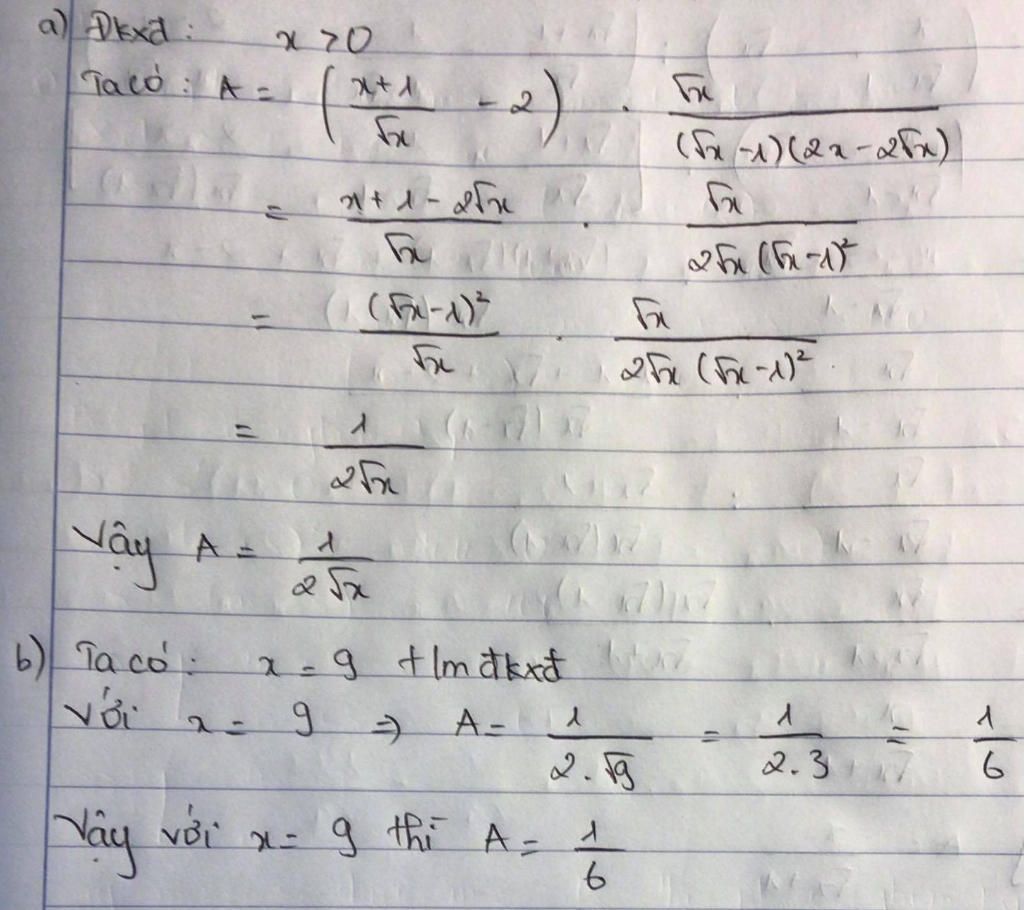 a) Đkxđ: x > 0
Ta có: A = ((x+1)/√x - 2) . √x/((√x-1)(2x-2√x))
= (x+1-2√x)/√x . √x/(2√x(√x-1)²)
= (√x-1)²/√x . √x/(2√x(√x-1)²)
= 1/(2√x)
Vậy A = 1/(2√x)
b) Ta có: x = 9 tlm đkxđ
Với x = 9 ⇒ A = 1/(2.√9) = 1/(2.3) = 1/6
Vậy với x = 9 thì A = 1/6